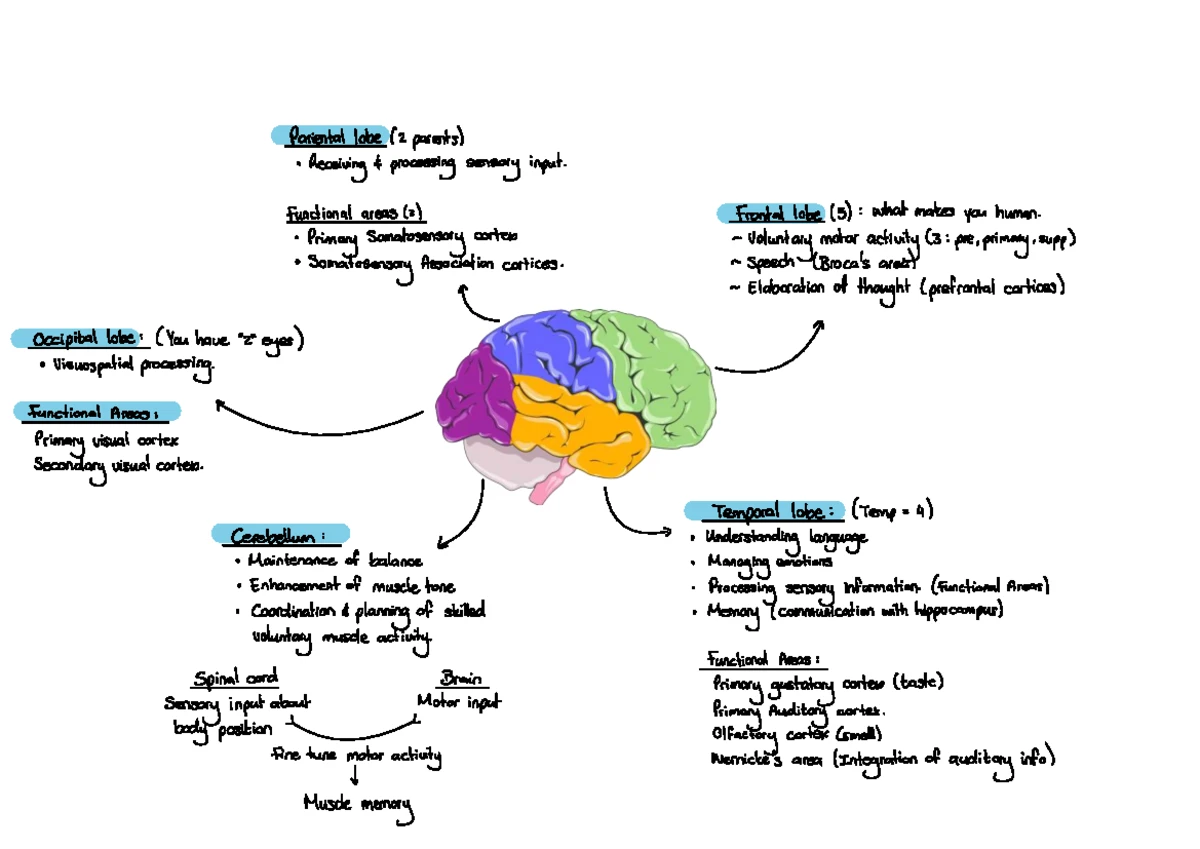 Pariental lobe (2 parents)
• Receiving & processing sensory input.
Functional areas (2)
• Primary Somatosensory cortex
• Somatosensory Association cortices.
Frontal lobe (5) : what makes you human.
~ Voluntary motor activity (3 : pre, primary, supp)
~ Speech (Broca's area)
~ Elaboration of thought (prefrontal cortices)
Occipital lobe : (You have "2" eyes)
• Visuospatial processing.
Functional Areas :
Primary visual cortex
Secondary visual cortex.
Cerebellum :
• Maintenance of balance
• Enhancement of muscle tone
• Coordination & planning of skilled
voluntary muscle activity.
Spinal cord
Sensory input about
body position
Brain
Motor input
Fine tune motor activity
Muscle memory
Temporal lobe : (Temp = 4)
• Understanding language
• Managing emotions
• Processing sensory information. (Functional Areas)
• Memory (communication with hippocampus)
Functional Areas :
Primary gustatory cortex (taste)
Primary Auditory cortex.
Olfactory cortex (smell)
Wernicke's area (Integration of auditory info)